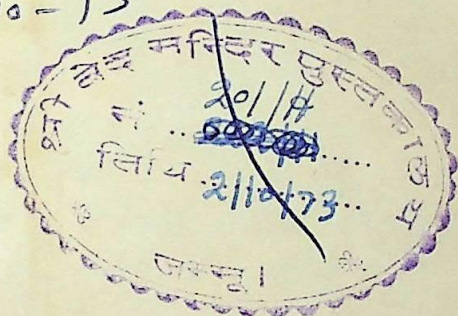 श्री वेद मन्दिर पुस्तकालय
नं .. 201/A
तिथि .2/10/73..
जम्मू।